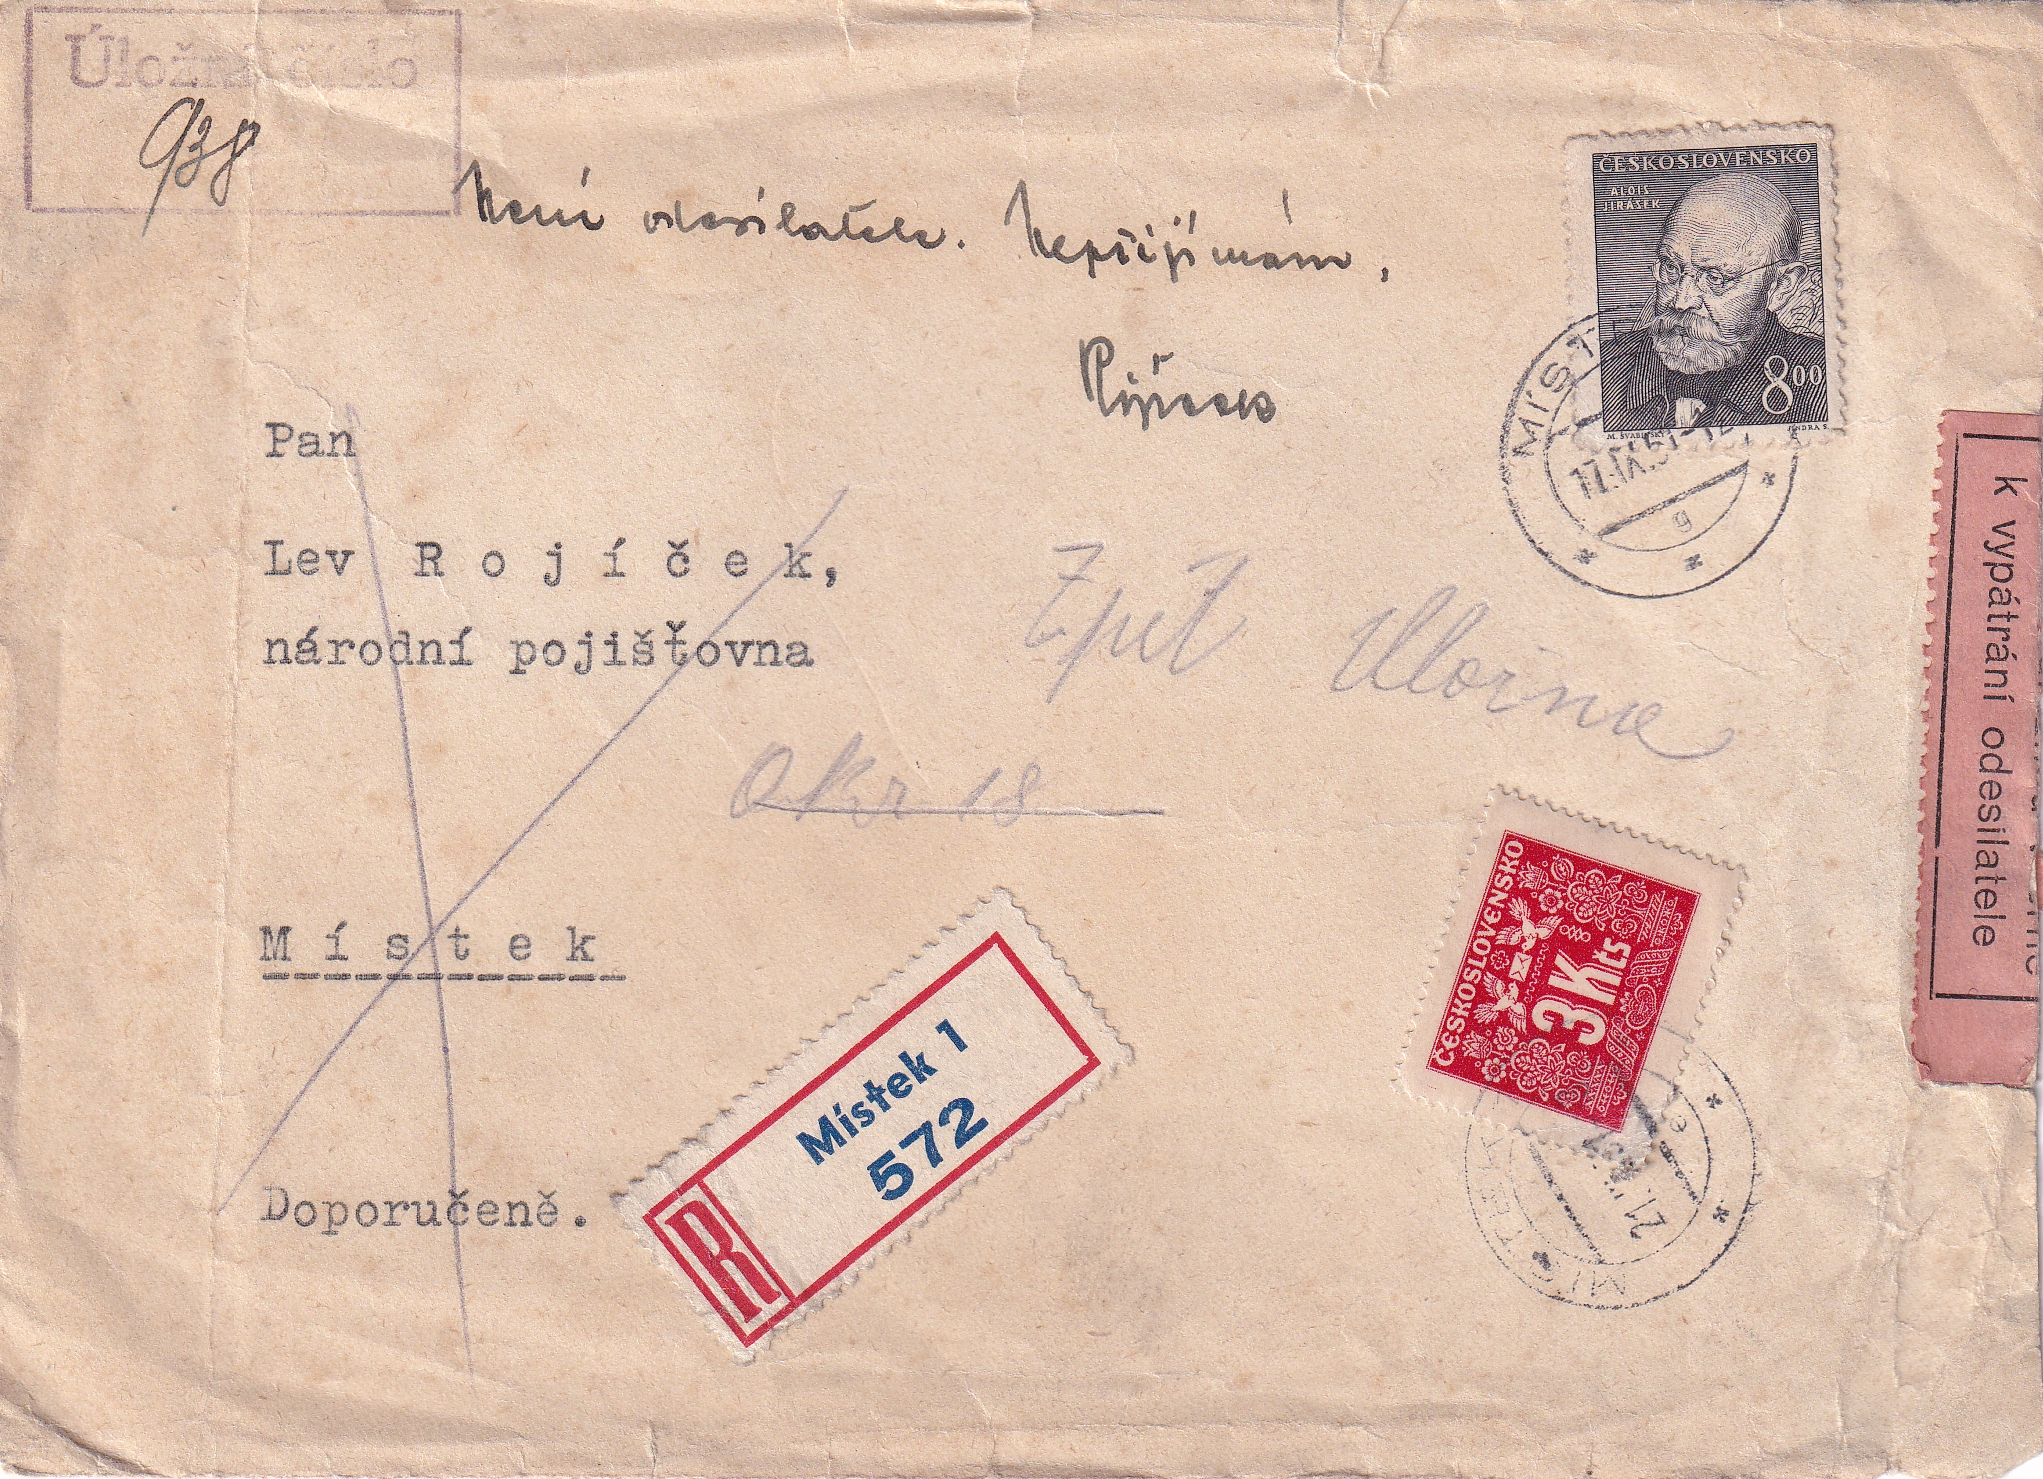 Úložné číslo
938
Není odesilatele. Nepřijímám.
ČESKOSLOVENSKO
ALOIS
JIRÁSEK
8 00
M. ŠVABINSKÝ JINDRA S.
MÍST
17.IX.51-12
g
Pan
Lev Rojíček,
národní pojišťovna
Zpět Úložna
Okr 18
Místek
Doporučeně.
R
Místek 1
572
ČESKOSLOVENSKO
3 Kčs
MÍSTEK
21.
e
k vypátrání odesilatele